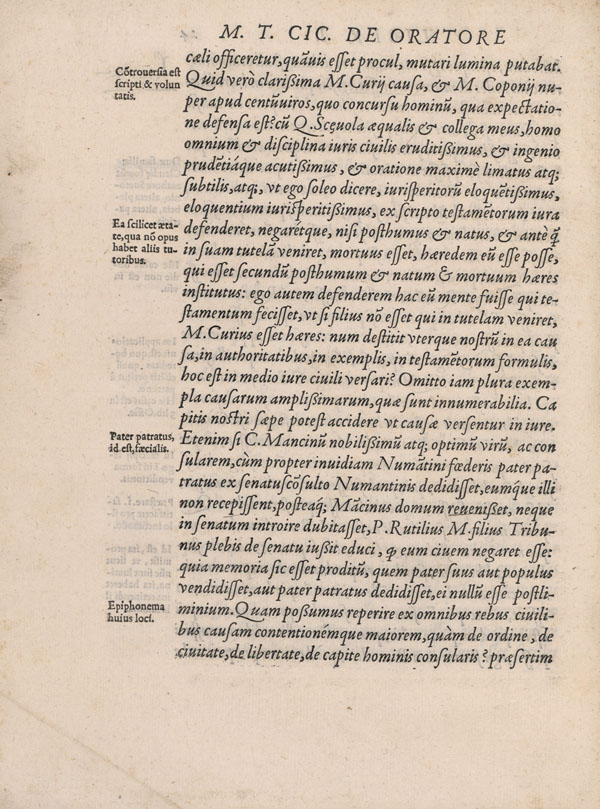 M. T. CIC. DE ORATORE
cæli officeretur, quãuis esset procul, mutari lumina putabat.
Cõtrouersia est
scripti & volun
tatis.
Quid verò clarissima M. Curij causa, & M. Coponij nu-
per apud centũuiros, quo concursu hominũ, qua expectatio-
ne defensa est? cũ Q. Scęuola æqualis & collega meus, homo
omnium & disciplina iuris ciuilis eruditissimus, & ingenio
prudẽtiáque acutissimus, & oratione maximè limatus atq;
subtilis, atq;, vt ego soleo dicere, iurisperitorũ eloquẽtissimus,
eloquentium iurisperitissimus, ex scripto testamẽtorum iura
Ea scilicet æta-
te, qua nõ opus
habet aliis tu-
toribus.
defenderet, negarétque, nisi posthumus & natus, & ante q̃
in suam tutelã veniret, mortuus esset, hæredem eũ esse posse,
qui esset secundũ posthumum & natum & mortuum hæres
institutus: ego autem defenderem hac eũ mente fuisse qui te-
stamentum fecisset, vt si filius nõ esset qui in tutelam veniret,
M. Curius esset hæres: num destitit vterque nostrũ in ea cau
sa, in authoritatibus, in exemplis, in testamẽtorum formulis,
hoc est in medio iure ciuili versari? Omitto iam plura exem-
pla causarum amplissimarum, quæ sunt innumerabilia. Ca
pitis nostri sæpe potest accidere vt causæ versentur in iure.
Pater patratus,
id est, fœcialis.
Etenim si C. Mancinũ nobilissimũ atq; optimũ virũ, ac con
sularem, cùm propter inuidiam Numãtini fœderis pater pa-
tratus ex senatuscõsulto Numantinis dedidisset, eumq́ue illi
non recepissent, posteaq; Mãcinus domum reuenisset, neque
in senatum introire dubitasset, P. Rutilius M. filius Tribu-
nus plebis de senatu iussit educi, ꝙ eum ciuem negaret esse:
quia memoria sic esset proditũ, quem pater suus aut populus
vendidisset, aut pater patratus dedidisset, ei nullũ esse postli-
Epiphonema
huius loci.
minium. Quam possumus reperire ex omnibus rebus ciuili-
bus causam contentionémque maiorem, quàm de ordine, de
ciuitate, de libertate, de capite hominis consularis? præsertim